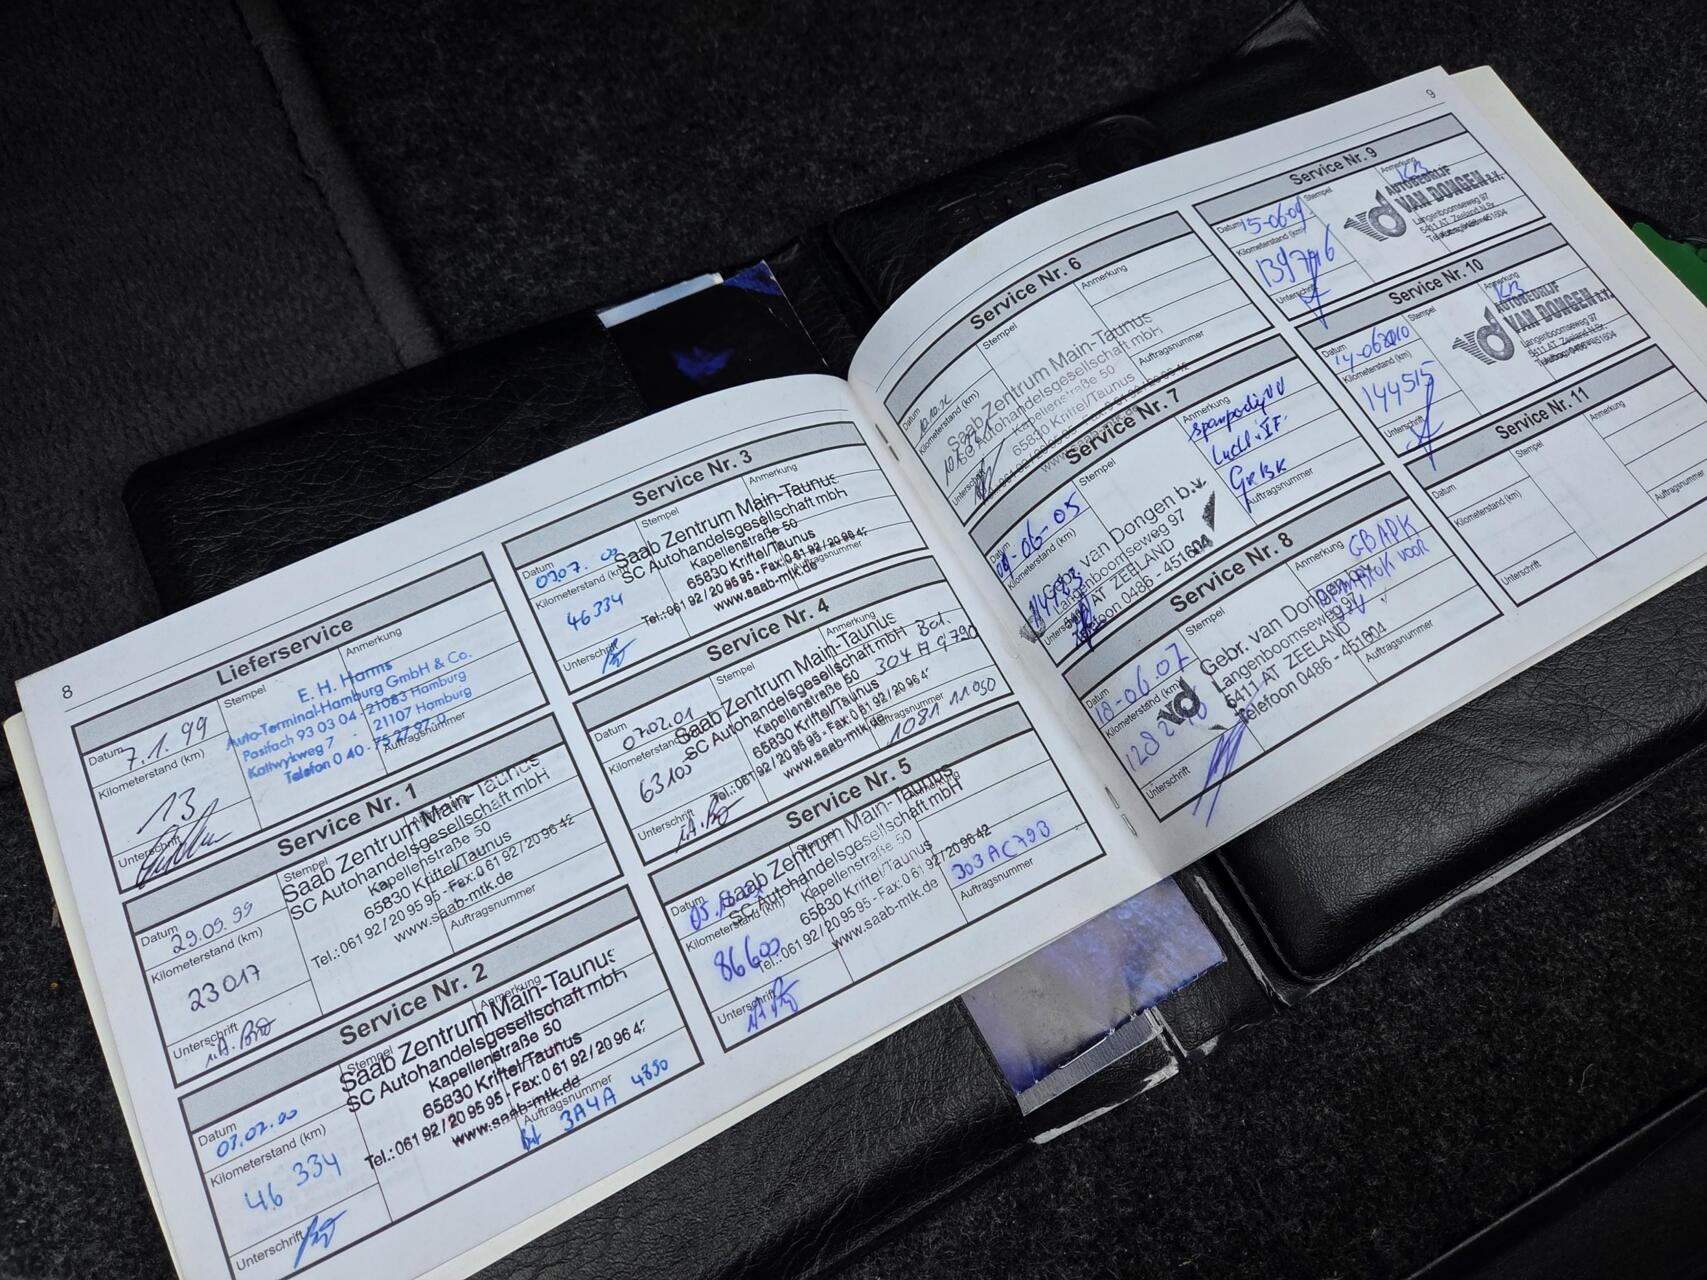 8
Lieferservice
Datum
7.1.99
Stempel
Anmerkung
E. H. Harms
Auto-Terminal-Hamburg GmbH & Co.
Postfach 93 03 04 · 21083 Hamburg
Kattwykweg 7 · 21107 Hamburg
Telefon 0 40 - 75 27 97-0
Kilometerstand (km)
13
Auftragsnummer
Unterschrift
Service Nr. 1
Datum
29.09.99
Stempel
Saab Zentrum Main-Taunus
SC Autohandelsgesellschaft mbH
Kapellenstraße 50
65830 Kriftel/Taunus
Tel.: 061 92 / 20 95 95 - Fax: 0 61 92 / 20 96 42
www.saab-mtk.de
Kilometerstand (km)
23017
Auftragsnummer
Unterschrift
Service Nr. 2
Datum
03.02.00
Stempel
Anmerkung
Saab Zentrum Main-Taunus
SC Autohandelsgesellschaft mbH
Kapellenstraße 50
65830 Kriftel/Taunus
Tel.: 061 92 / 20 95 95 - Fax: 0 61 92 / 20 96 4
www.saab-mtk.de
Kilometerstand (km)
46 334
Auftragsnummer
3A4A 4890
Unterschrift
Service Nr. 3
Datum
Stempel
Anmerkung
Saab Zentrum Main-Taunus
SC Autohandelsgesellschaft mbH
Kapellenstraße 50
65830 Kriftel/Taunus
Tel.: 061 92 / 20 95 95 - Fax: 0 61 92 / 20 96 4
www.saab-mtk.de
Kilometerstand (km)
46334
Auftragsnummer
Unterschrift
Service Nr. 4
Datum
07.02.01
Stempel
Anmerkung
304 A 9790
Saab Zentrum Main-Taunus
SC Autohandelsgesellschaft mbH
Kapellenstraße 50
65830 Kriftel/Taunus
Tel.: 061 92 / 20 95 95 - Fax: 0 61 92 / 20 96 4
www.saab-mtk.de
63105
Auftragsnummer
1081 11050
Unterschrift
Service Nr. 5
Datum
Stempel
Anmerkung
Saab Zentrum Main-Taunus
SC Autohandelsgesellschaft mbH
Kapellenstraße 50
65830 Kriftel/Taunus
Tel.: 061 92 / 20 95 95 - Fax: 0 61 92 / 20 96 42
www.saab-mtk.de
Kilometerstand (km)
86600
303AC793
Auftragsnummer
Unterschrift
9
Service Nr. 6
Datum
Stempel
Anmerkung
Saab Zentrum Main-Taunus
SC Autohandelsgesellschaft mbH
Kapellenstraße 50
65830 Kriftel/Taunus
Kilometerstand (km)
Auftragsnummer
Unterschrift
Service Nr. 7
Datum
Stempel
Anmerkung
Gebr. van Dongen b.v.
Langenboomseweg 97
5411 AT ZEELAND
Telefoon 0486 - 451604
Kilometerstand (km)
Auftragsnummer
Service Nr. 8
Datum
18-06-07
Stempel
Anmerkung
GB APK
VOOR
Gebr. van Dongen b.v.
Langenboomseweg 97
5411 AT ZEELAND
Telefoon 0486 - 451604
Kilometerstand (km)
Auftragsnummer
Unterschrift
Service Nr. 9
Datum
15-06-09
Stempel
Anmerkung
AUTOBEDRIJF
VAN DONGEN B.V.
Langenboomseweg 97
5411 AT Zeeland N.Br.
Telefoon 0486-451604
Kilometerstand (km)
Unterschrift
Service Nr. 10
Datum
14-062010
Stempel
Anmerkung
AUTOBEDRIJF
VAN DONGEN B.V.
Langenboomseweg 97
5411 AT Zeeland N.Br.
Telefoon 0486-451604
Kilometerstand (km)
144515
Unterschrift
Service Nr. 11
Datum
Stempel
Anmerkung
Kilometerstand (km)
Unterschrift